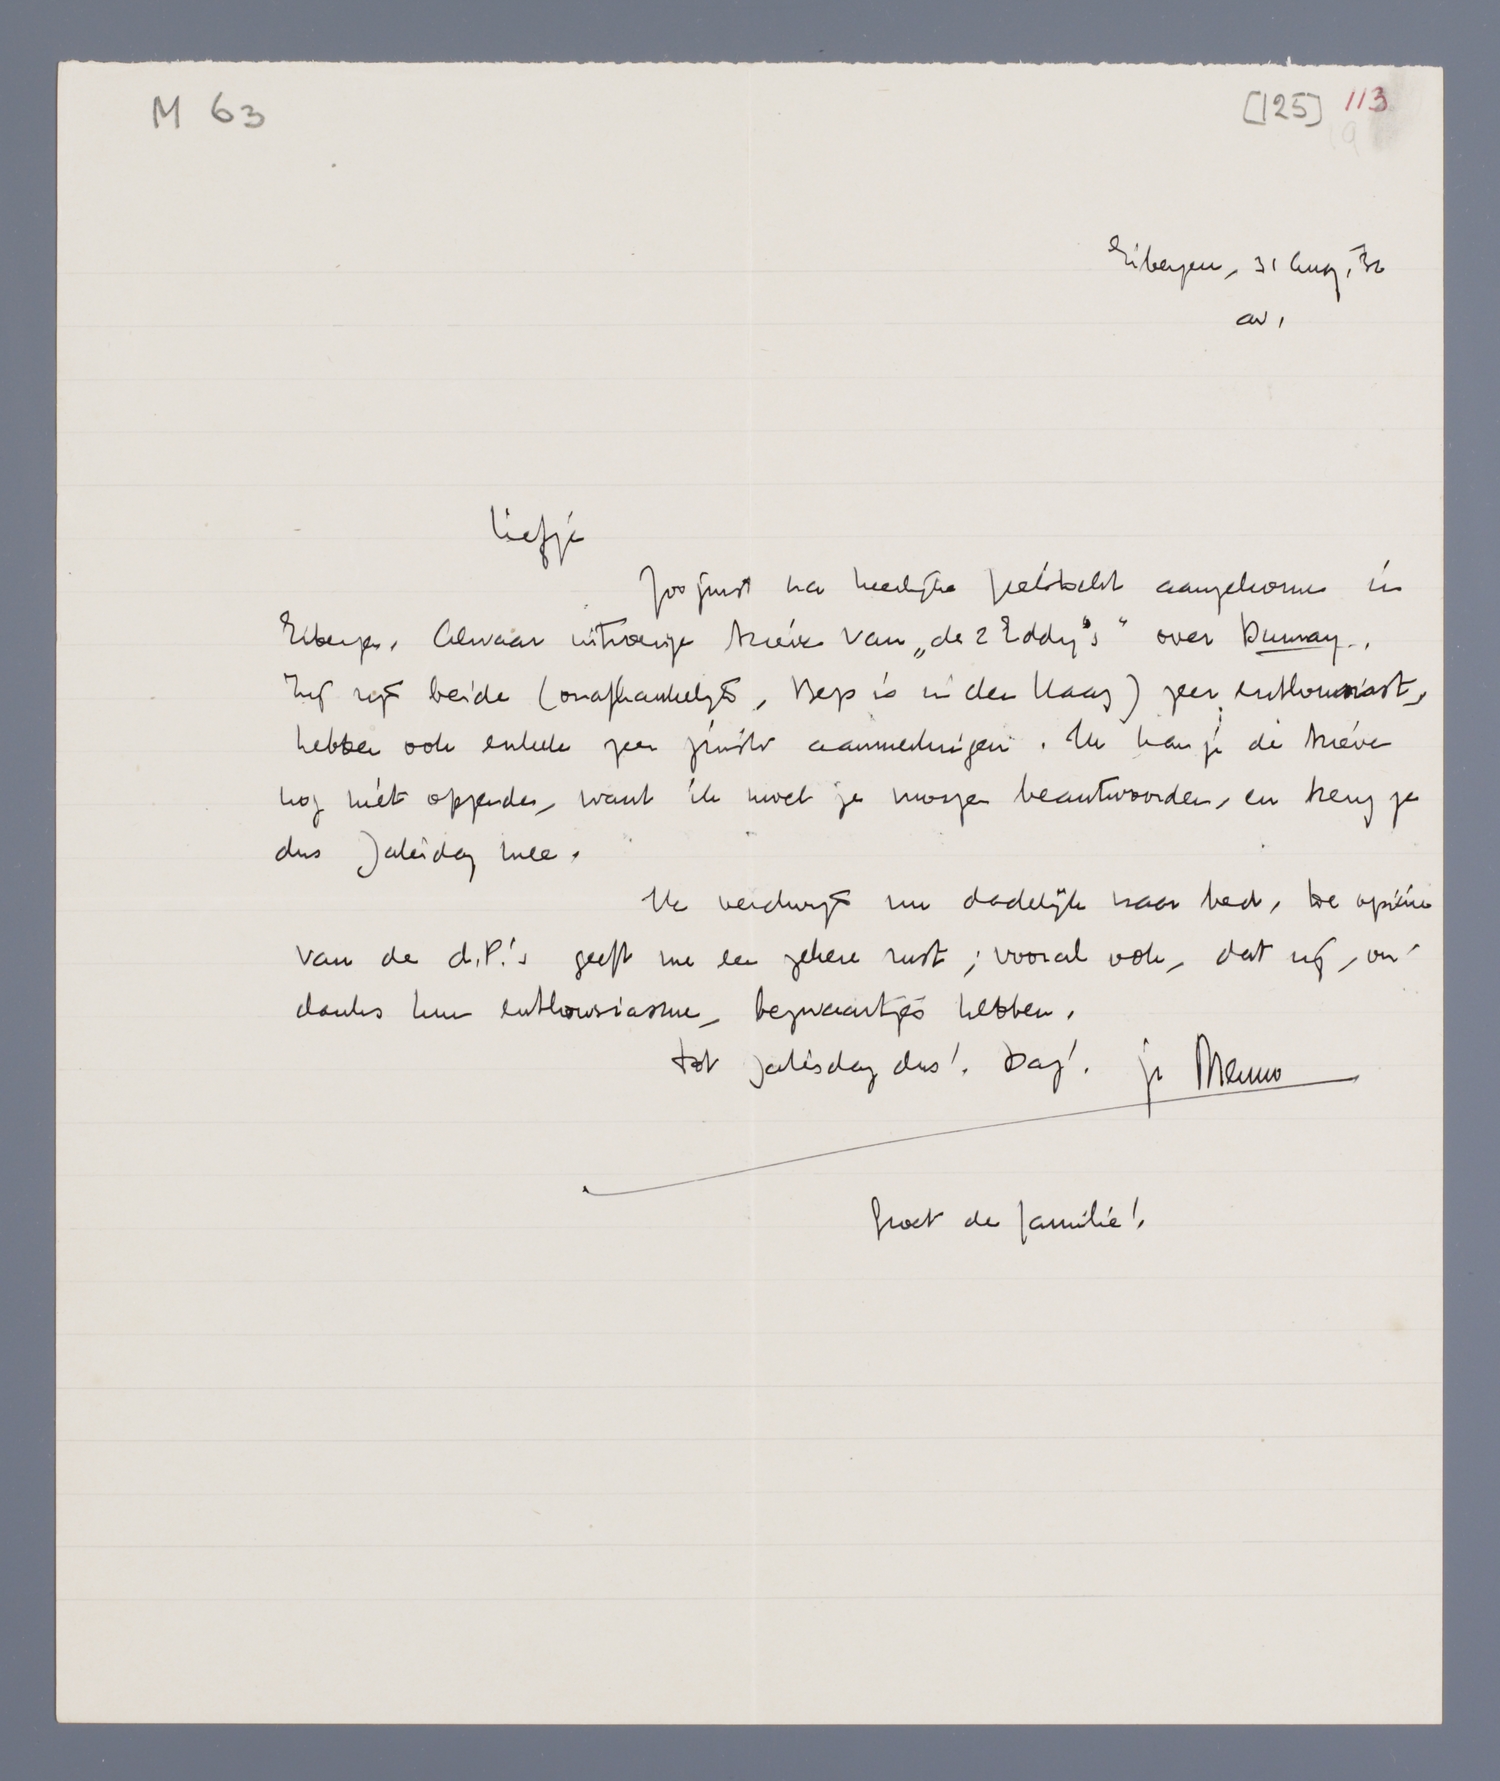 M 63
[125] 113
Eibergen, 31 Aug, 32
av.
Liefje
Zoo juist na heerlijke fietstocht aangekomen in
Eibergen. Alwaar uitvoerige brieven van „de 2 Eddy's" over Dumay.
Zij zijn beide (onafhankelijk, Bep is in den Haag) zeer enthousiast,
hebben ook enkele zeer juiste aanmerkingen. Ik kan je de brieven
nog niet opzenden, want ik moet ze morgen beantwoorden, en breng ze
dus Zaterdag mee.
Ik verdwijn nu dadelijk naar bed, de opinie
van de d.P.'s geeft me een zekere rust; vooral ook, dat zij, on-
danks hun enthousiasme, bezwaartjes hebben.
Tot Zaterdag dus! Dag! je Menno
Groet de familie!